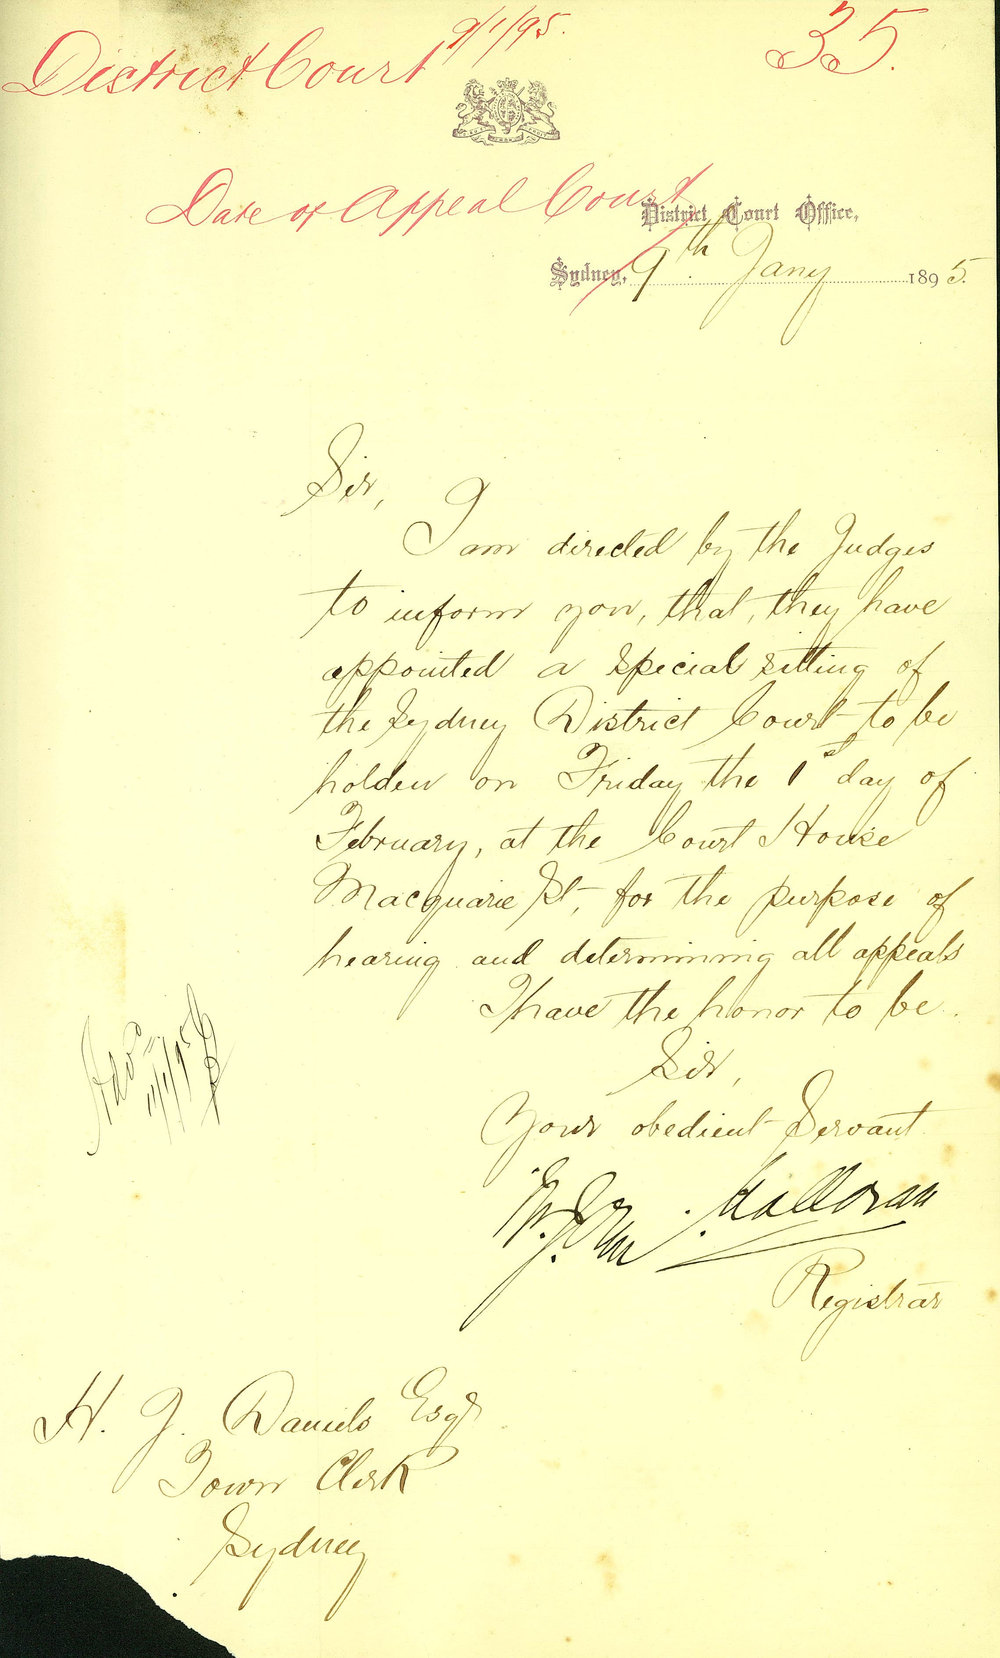 District Court 9/1/95. 35.
Date of Appeal Court
District Court Office,
Sydney, 9th Jany 1895.
Sir,
I am directed by the Judges
to inform you, that, they have
appointed a special sitting of
the Sydney District Court to be
holden on Friday the 1st day of
February, at the Court House
Macquarie St, for the purpose of
hearing and determining all appeals
I have the honor to be.
Sir,
Your obedient Servant
Halloran
Registrar
H. J. Daniels Esqr
Town Clerk
Sydney